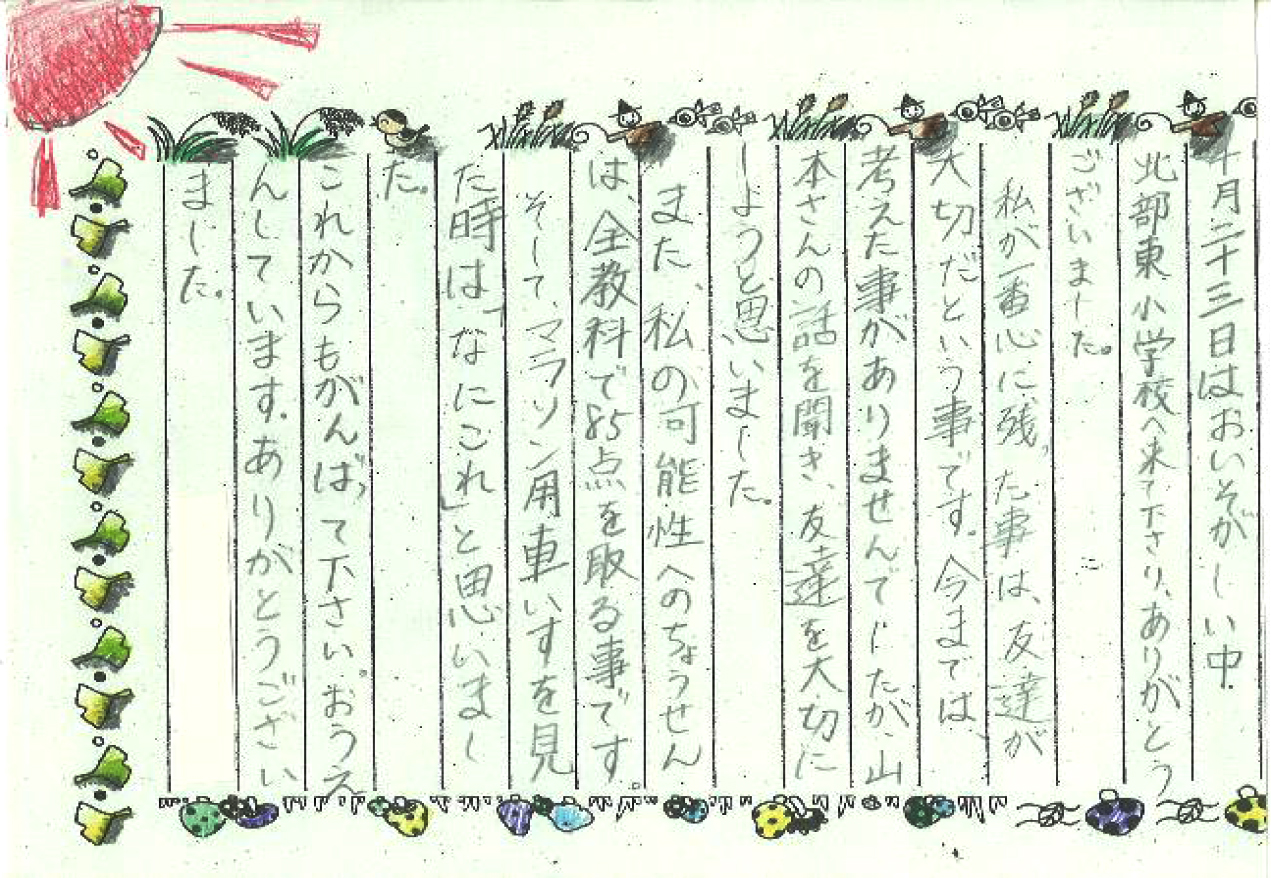 十月二十三日はおいそがしい中
北部東小学校へ来て下さり、ありがとう
ございました。
私が一番心に残った事は、友達が
大切だという事です。今までは、
考えた事がありませんでしたが、山
本さんの話を聞き、友達を大切に
しようと思いました。
また、私の可能性へのちょうせん
は、全教科で85点を取る事です。
そして、マラソン用車いすを見
た時は、「なにこれ」と思いまし
た。
これからもがんばって下さい。おうえ
んしています。ありがとうござい
ました。